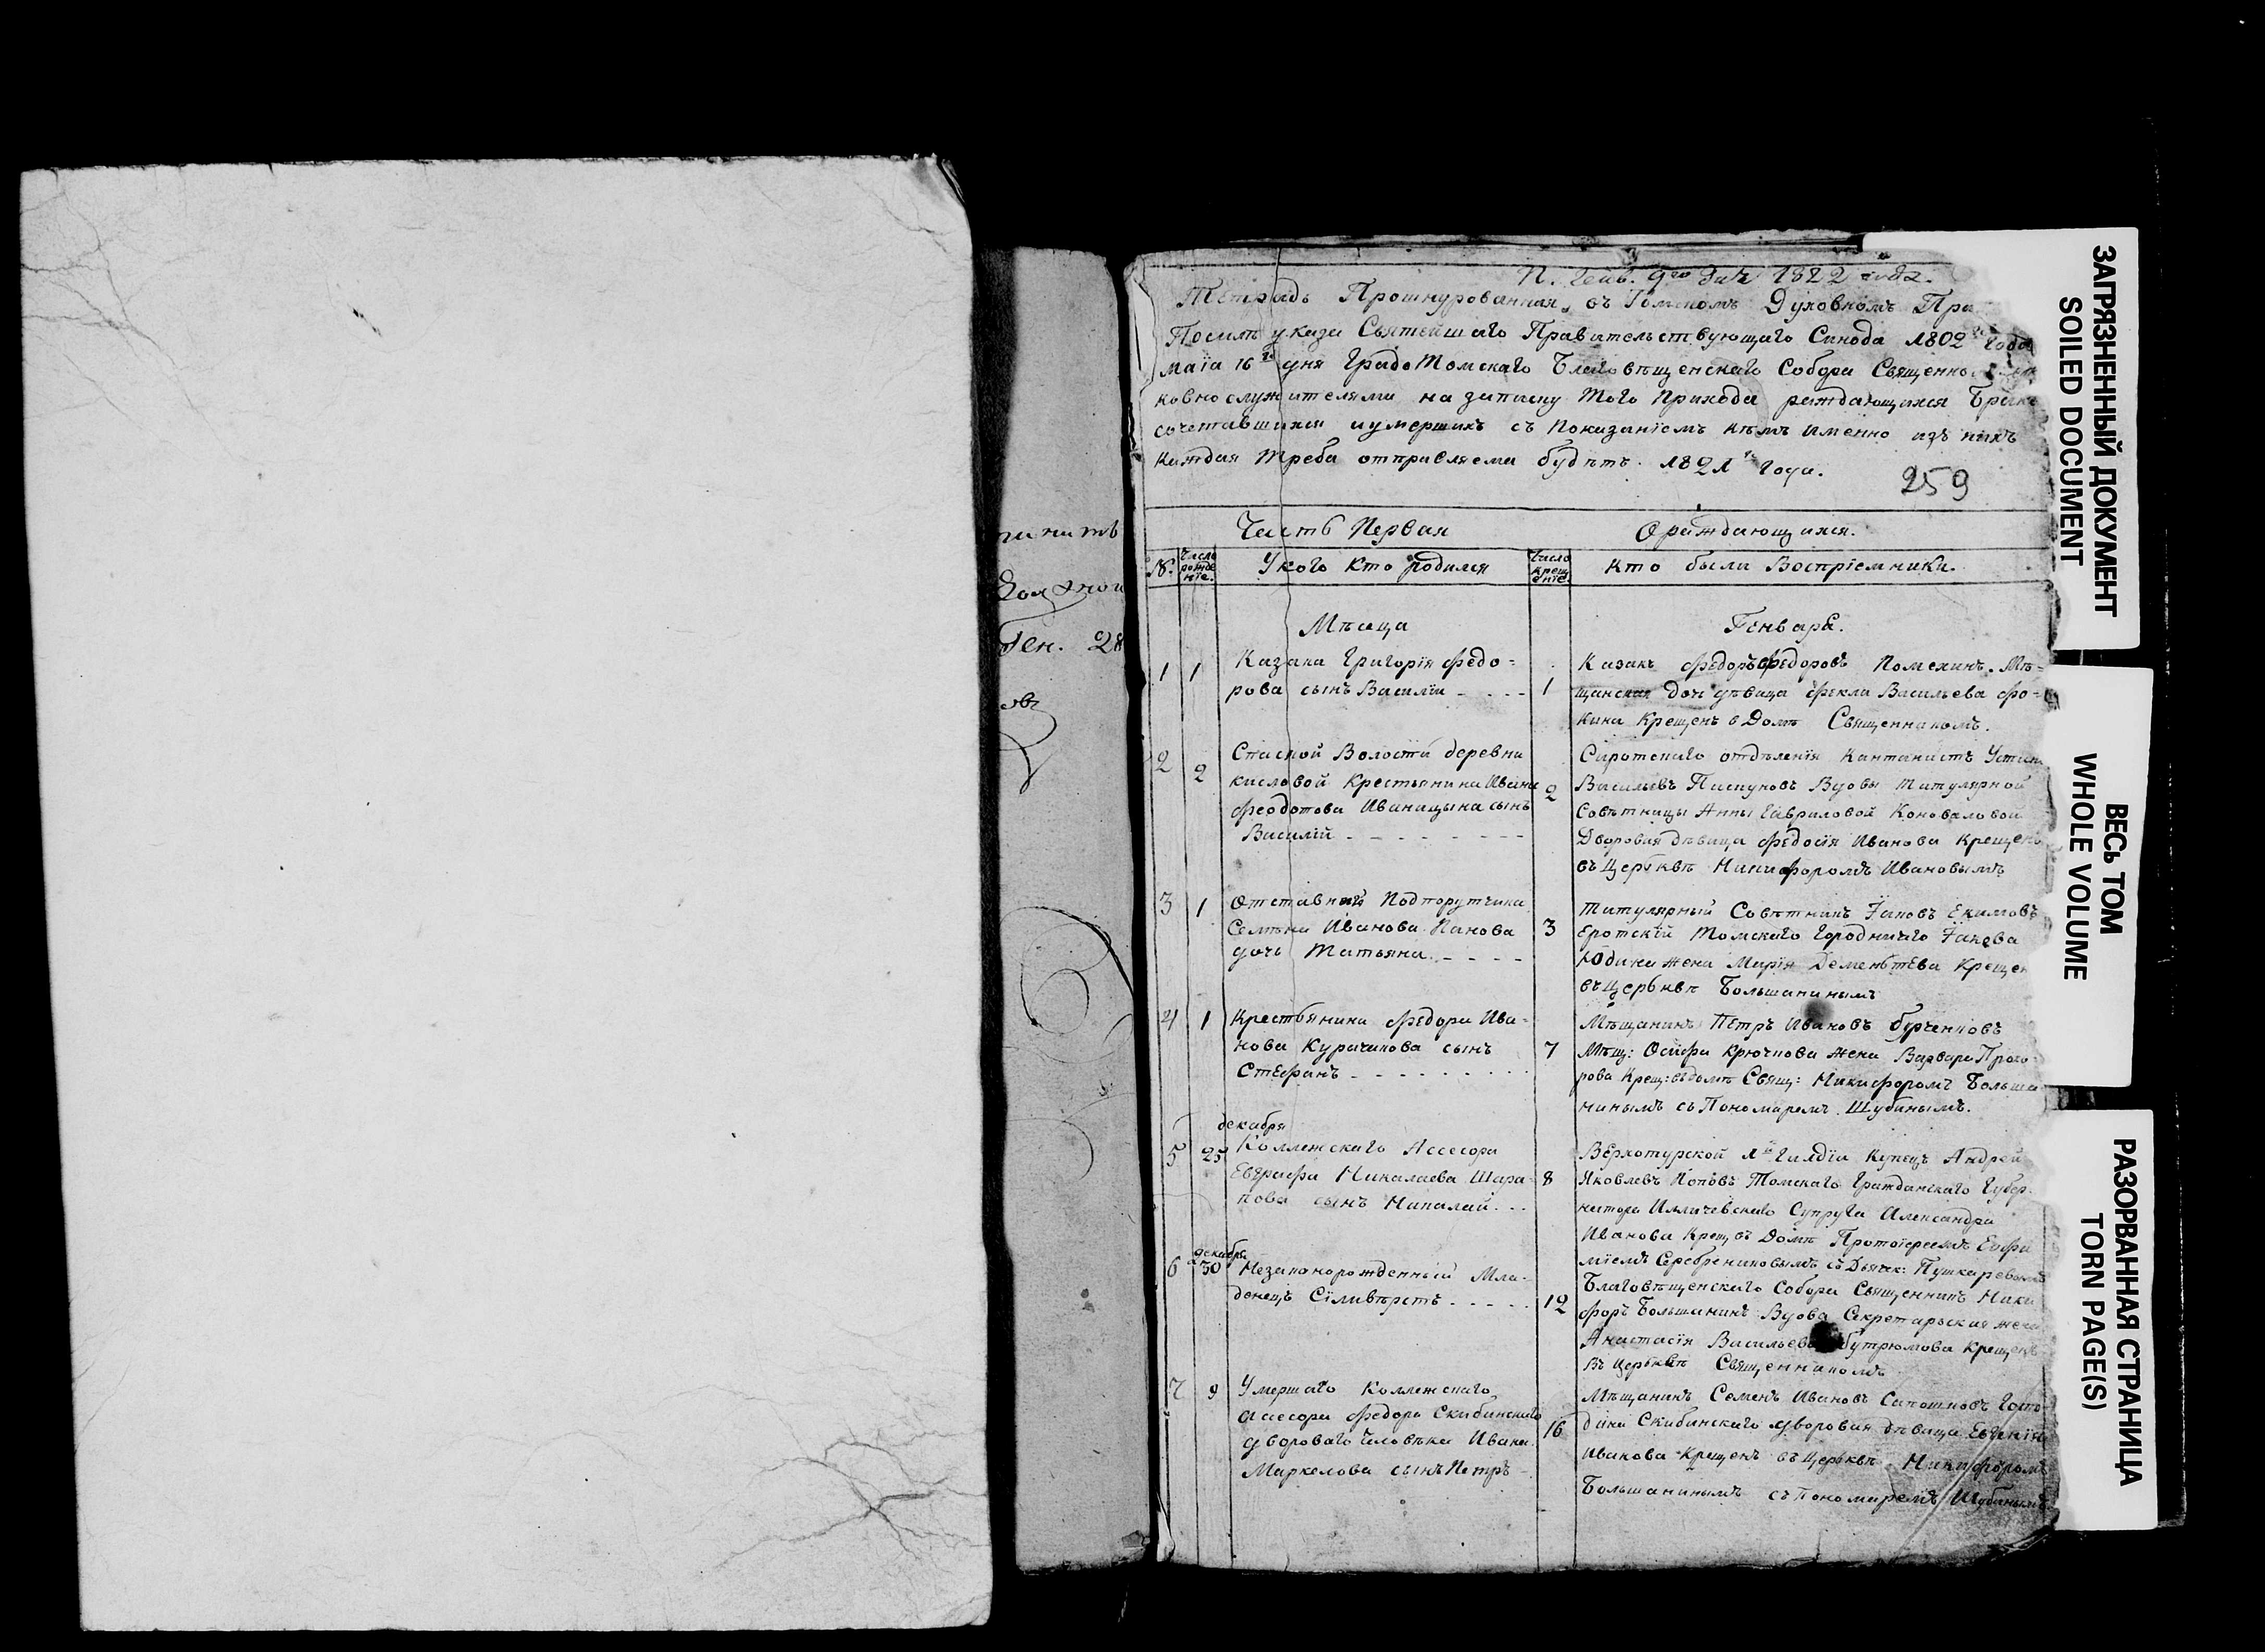 нить
Ген. 28
П. Генв. 9го дня 1822 года.
Тетрадь Прошнурованная, въ Томскомъ Духовномъ Пра
Посилѣ указа Святейшаго Правительствующаго Синода 1802го Года
маїа 16го дня Градо Томскаго Благовѣщенскаго Собора Священно
ковнослужителями на записку Того Прихода раждающихся Брако
сочетавшихся иумершихъ съ Показанїемъ кѣмъ Именно изъ нихъ
Каждая Треба отправляема будѣтъ. 1821го Года.
259
Часть Первая
Ораждающихся.
№. Число рожде нїе. Укого Кто родился Число крещ енїе. Кто были Воспрїемники.
Мѣсяца
Генваря.
1 1 Казака Григорїя Федо=
рова сынъ Василїи 1
Казакъ Федоръ Федоровъ Помехинъ. Мѣ=
щанская Дочь дѣвица Фекла Васильева Фо=
кина Крещенъ в Домѣ Священникомъ.
2 2 Спаской Волости деревни
кисловой Крестьянина Ивана
Феодотова Иваницына сынъ 2
Василїй
Сиротскаго отдѣленїя Кантанистъ Устинъ
Васильевъ Пискуновъ Вдовы Титулярной
Совѣтницы Анны Гавриловой Коноваловой
Дворовая дѣвица Федосїя Иванова Крещенъ
въ Церьквѣ Никифоромъ Ивановымъ
3 1 Отставной Подпорутчика
Семѣна Иванова Панова 3
дочь Татьяна
Титулярный Совѣтникъ Їаковъ Екимовъ
Еротскїй Томскаго Городничаго Їакова
Юдина жена Марїя Деменьтева Крещен
въ Церьквѣ Большанинымъ
4 1 Крестьянина Федора Ива=
нова Курачикова сынъ 7
Стефанъ
Мѣщанинъ Петръ Ивановъ бурченковъ
Мѣщ: Осифа Крючкова жена Варвара Прохо=
рова Крещ: въ домѣ Свящ: Никифоромъ Больша
нинымъ съ Пономаремъ Шубинымъ.
декабря
5 25 Коллежскаго Ассесора
Евграфа Николаева Шара 8
пова сынъ Николай
Верхотурской 1й Гилдїи Купецъ Андрей
Яковлевъ Поповъ Томскаго Гражданскаго Губер
натора Илличевскаго Супруга Александра
Иванова Крещ въ Домѣ Протоїереемъ Евфи
мїемъ Серебрениковымъ съ Дьячк: Пушкаревымъ
декабря
6 30 Незаконорожденный Мла
денецъ Сїливѣрстъ 12
Благовѣщенскаго Собора Священникъ Ники
форъ Большанинъ Вдова Секретарьская жена
Анастасїя Васильева бутрюмова Крещенъ
Въ Церьквѣ Священникомъ
7 9 Умершаго Коллежскаго
асесора Федора Скибинскаго
двороваго человѣка Ивана 16
Маркелова сынъ Петръ
Мѣщанинъ Семенъ Ивановъ Сапошковъ Госпо
дина Скибинскаго дворовая дѣвица Евгенїя
Иванова Крещенъ въ Церьквѣ Никифоромъ
Большанинымъ съ Пономаремъ Шубинымъ
ЗАГРЯЗНЕННЫЙ ДОКУМЕНТ
SOILED DOCUMENT
ВЕСЬ ТОМ
WHOLE VOLUME
РАЗОРВАННАЯ СТРАНИЦА
TORN PAGE(S)